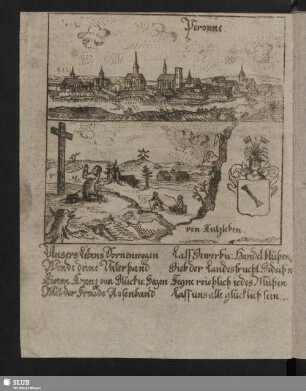 Peronne
von Kutzleben.
Unsers Lebens Dornenwegen
Wende deine Vaterhand
Diesen Kranz von Glück u: Segen
Mit der Freude Rosenband
Lass Gewerb u: Handel blühen,
Gieb der Landesfrucht Gedeihn
Segne reichlich jedes Mühen
Lass uns alle glücklich sein
SLUB